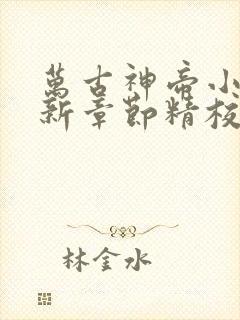 萬古神帝小
新章節精校
林金水